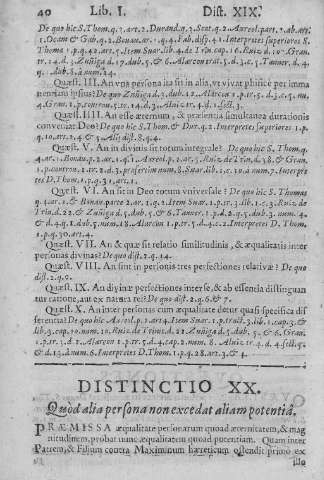 40 Lib. I. Dist. XIX.
De quo hic S. Thom. q. 1. art. 2. Durand. q. 3. Scot. q. 2. Aureol. part. 2. ab. art.
1. Ocam & Gab. q. 2. Bonau. ar. 1. q. 4. Fab. disp. 41. Interpretes superiores S.
Thomæ 1. p. q. 42. art. 5. Item Suar. lib. 4. de Trin. cap. 16. Ruiz. d. 107. Gran.
tr. 14. d. 5. Zuñiga d. 17. dub. 5. & 6. Alarcon trat. 5. d. 3. c. 5. Tanner, d. 4.
q. dub. 5. à num. 24.
Quæst. III. An vna persona ita sit in alia, vt vivat
De quo Zuñiga d. dub. Alarcon
Gran. 1. p. controu. 5. tr. 14. d. 3. tr. 4. d. 1. sect. 3.
Quæst. IIII. An esse æternum, & præsentia simultanea durationis
conveniat Deo? De quo hic S. Thom. & Dur. q. 2. Interpretes superiores 1. p.
q. 10. art. & disp.
Quæst. V. An in divinis sit totum integrale? De quo hic S. Thom. q.
4. ar. 1. Bonau. p. 2. ar. 1. q. 1. Aureol. p. 2. ar. 5. Ruiz de Trin. d. 38. & Gran.
1. p. controu. 1. tr. 2. d. 3. præfertim num. 8. Suar. lib. 1. c. 10. a num. 7. Interpretes
D. Thom. 1. p. q. 31. art. 1.
Quæst. VI. An sit in Deo totum vniversale? De quo hic S. Thomas
q. 4. ar. 1. & Bonau. parte 2. ar. 1. q. 2. Item Suar. 1. p. tr. 3. lib. 1. c. 3. Ruiz de
Trin. d. 22. & Zuñiga d. 5. dub. 5. & 6. Tanner. 1. p. d. 2. q. 5. dub. 3. num. 2.
& d. 4. q. 1. dub. 5. num. 18. Alarcon 1. p. tr. 5. d. 4. c. 2. Interpretes D. Thom.
1. p. q. 30. art. 4.
Quæst. VII. An & quæ sit relatio similitudinis, & æqualitatis inter
personas divinas? De quo dist. 2. q. 14.
Quæst. VIII. An sint in personis tres perfectiones relativæ? De quo
dist. 2. q. 9.
Quæst. IX. An divinæ perfectiones inter se, & ab essencia distinguan
tur ratione, aut ex natura rei? De quo dist. 2. q. 6. & 7.
Quæst. X. An inter personas cum æqualitate detur quasi specifica dif
ferentia? De quo hic Aureol. p. 1. art. 4. Item Suar. 1. p. tract. 3. lib. 1. cap. 3. &
lib. 9. cap. 10. num. 10. Ruiz. de Trin. d. 21. Zuñiga d. 5. dub. 5. & 6. Gran.
1. p. tr. 3. d. 2. Alarcon 1. p. tr. 5. d. 4. cap. 2. num. 8. tr. 4. d. 4. sect. 5.
& d. 13. à num. 6. Interpretes D. Thom. 1. p. q. 28. art. 3. & 4.
DISTINCTIO XX.
Quod alia persona non excedat aliam potentiâ.
PRÆMISSA æqualitate personarum quoad æternitatem, & mag
nitudinem, probat nunc æqualitatem quoad potentiam. Quam inter
Patrem, & Filium contra Maximinum hæreticum ostendit primò ex
illo